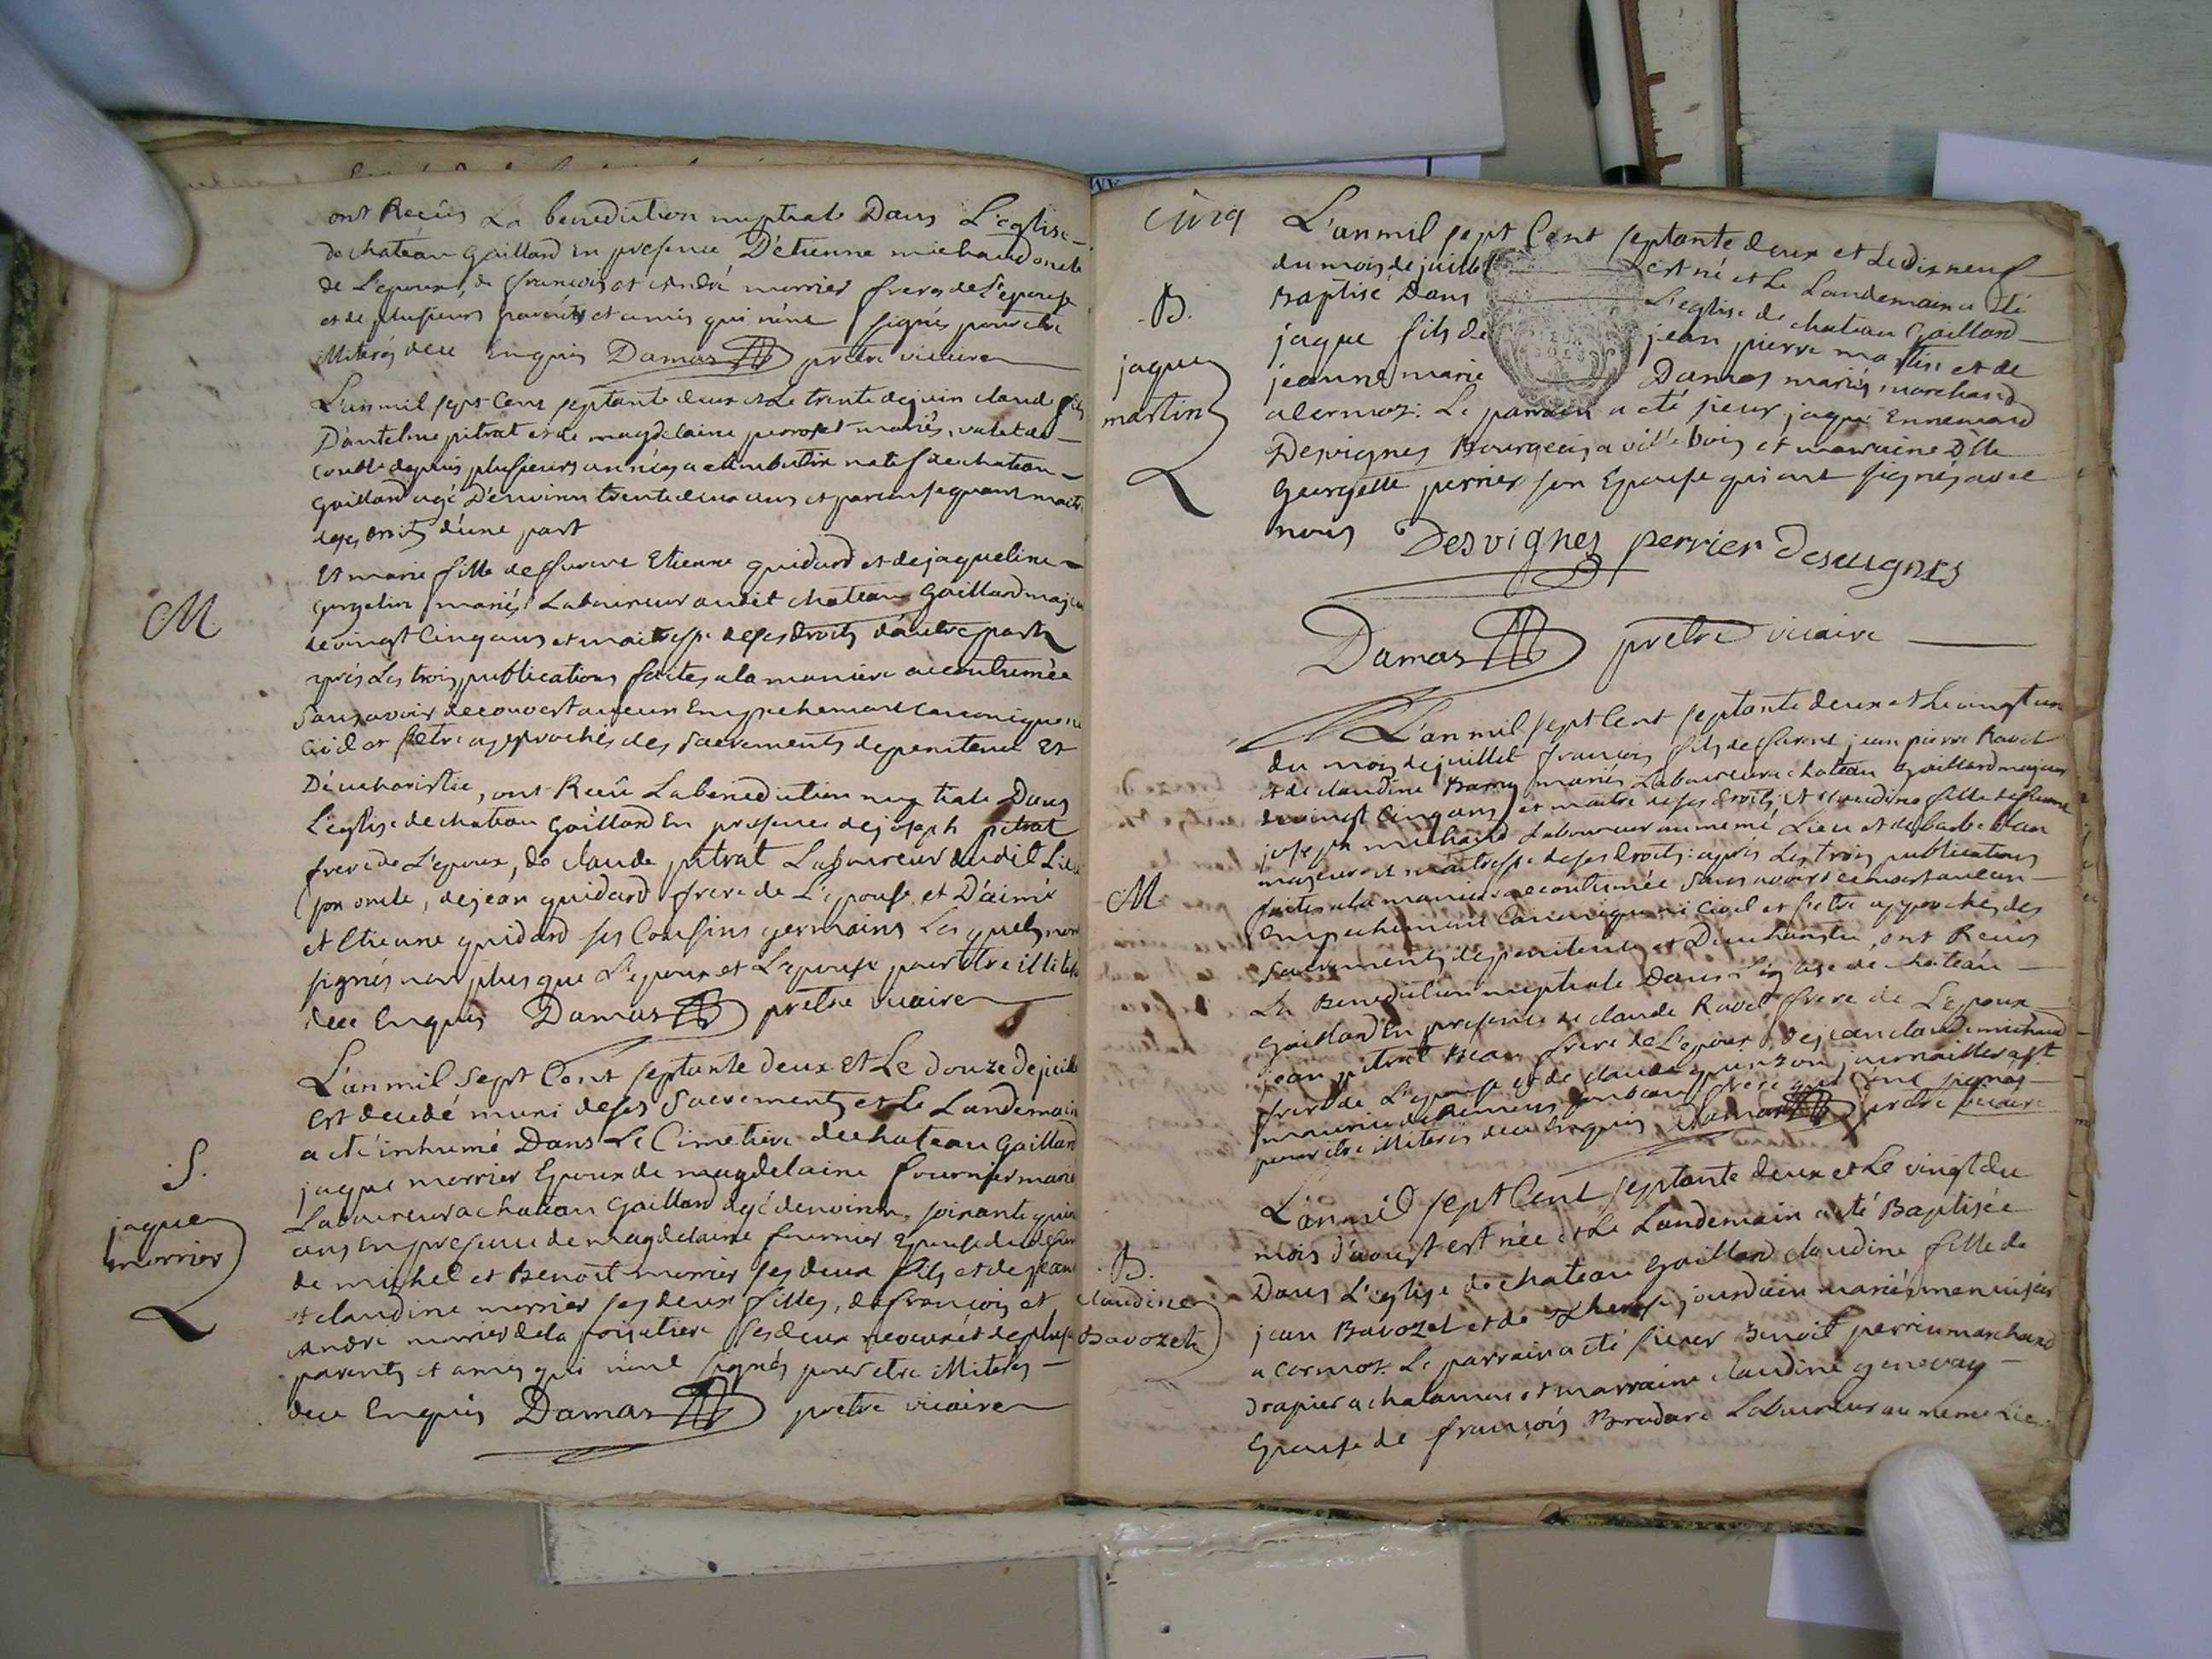 ont Reçûs La benediction nuptiale Dans L'eglise
de chateau Gaillard En presence D'etienne michaud oncle
de L'epoux, de françois et André morrier freres de L'epouse
et de plusieurs parents et amis qui n'ont signés pour etre
illiterés deue Enquis Damas prêtre vicaire
L'an mil sept Cent septante deux et Le trente de juin claude fils
D'antelme pitrat et de magdelaine perroset mariés, valet de
depuis plusieurs années a natif de chateau
Gaillard agé D'environ trente deux ans et par consequant maitre
de ses droits d'une part
Et marie fille de feurent Etienne guidard et de jaqueline
mariés Laboureur audit chateau Gaillard majeure
de vingt Cinq ans et maitresse de ses Droits d'autre part
après Les trois publications faites a la maniere accoutumée
Sans avoir decouvert aucun Empechement Canonique ni
Civil et s'etre approchés des sacrements de penitence et
D'eucharistie, ont Recû La benediction nuptiale Dans
L'eglise de chateau Gaillard En presence de joseph pitrat
frere de L'epoux, de claude pitrat Laboureur dudit Lieu
son oncle, de jean guidard frere de L'epouse et D'aimé
et Etienne guidard ses Cousins germains Les quels n'ont
signés non plus que L'epoux et L'epouse pour etre illiterés
deue Enquis Damas prêtre vicaire
M
L'an mil Sept Cent septante deux Et Le douze de juillet
est decedé muni de ses Sacrements et Le Landemain
a eté inhumé Dans Le Cimetiere de chateau Gaillard
jaque morrier Epoux de magdelaine fournier mariés
Laboureur a chateau Gaillard agé d'environ soixante quinze
ans En presence de magdelaine fournier Epouse du
de michel et Benoit morrier ses deux fils et de jeanne
et claudine morrier ses deux filles, de françois et
André morrier de la ses deux neveux et de plusieurs
parents et amis qui n'ont signés pour etre illiterés
deue Enquis Damas prêtre vicaire
S.
jaque
morrier
cinq
L'an mil sept Cent septante deux et Le dix neuf
du mois de juillet est né et Le Landemain a eté
Baptisé Dans L'eglise de chateau Gaillard
jaque fils de jean pierre martin et de
jeanne marie Damas mariés, marchand
a Cormoz. Le parrain a eté sieur jaque Ennemond
Desvignes Bourgeois a villebois et marraine Dlle
Georgette perrier son Epouse qui ont signés avec
nous Desvignes perrier desvignes
Damas prêtre vicaire
B.
jaque
martin
L'an mil sept Cent septante deux et Le vingt un
du mois de juillet françois fils de feurent jean pierre Ravet
et de claudine mariés Laboureur a chateau Gaillard majeur
de vingt Cinq ans et maitre de ses droits; et claudine fille de feurent
joseph michaud Laboureur au meme Lieu et de
majeure et maitresse de ses droits: après Les trois publications
faites a la maniere accoutumée Sans avoir decouvert aucun
Empechement Canonique ni Civil et s'etre approchés des
Sacrements de penitence et D'eucharistie, ont Recûs
La Benediction nuptiale Dans L'eglise de chateau
Gaillard En presence de claude Ravet frere de L'epoux
jean pitrat Beau frere de L'epoux, de jean claude michaud
frere de L'epouse et de claude journaillier a St
maurice de Remens son beau frere qui n'ont signés
pour etre illiterés deue Enquis Damas prêtre vicaire
M
L'an mil sept Cent septante deux et Le vingt du
mois d'aoust est née et Le Landemain a eté Baptisée
Dans L'eglise de chateau Gaillard claudine fille de
jean Bavozet et de Therese jourdain mariés, menuisier
a Cormoz. Le parrain a eté sieur Benoit perrin marchand
drapier a chalamont et marraine claudine genevay
Epouse de françois Laboureur au meme Lieu
B.
claudine
Bavozet